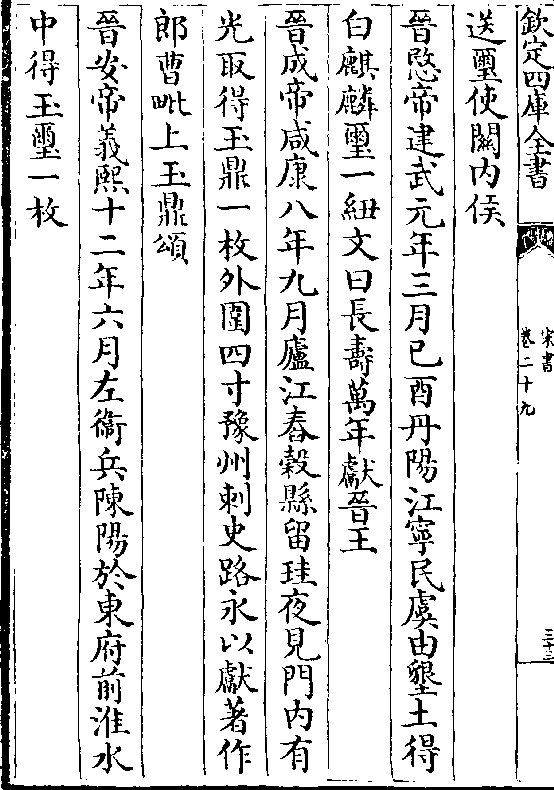 欽定四庫全書
宋書
卷二十九
三十三
送璽使關内侯
晉愍帝建武元年三月己酉丹陽江寧民虞由墾土得
白麒麟璽一紐文曰長壽萬年獻晉王
晉成帝咸康八年九月廬江舂榖縣留珪夜見門内有
光取得玉鼎一枚外圍四寸豫州刺史路永以獻著作
郎曹毗上玉鼎頌
晉安帝義熙十二年六月左衞兵陳陽於東府前淮水
中得玉璽一枚